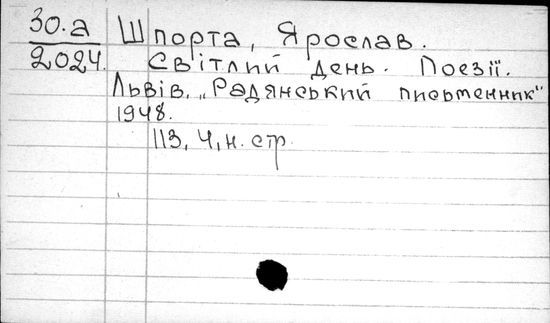 30.а
2024.
Шпорта, Ярослав.
Світлий день. Поезії.
Львів, „Радянський письменник"
1948.
113, 4, н. стр.